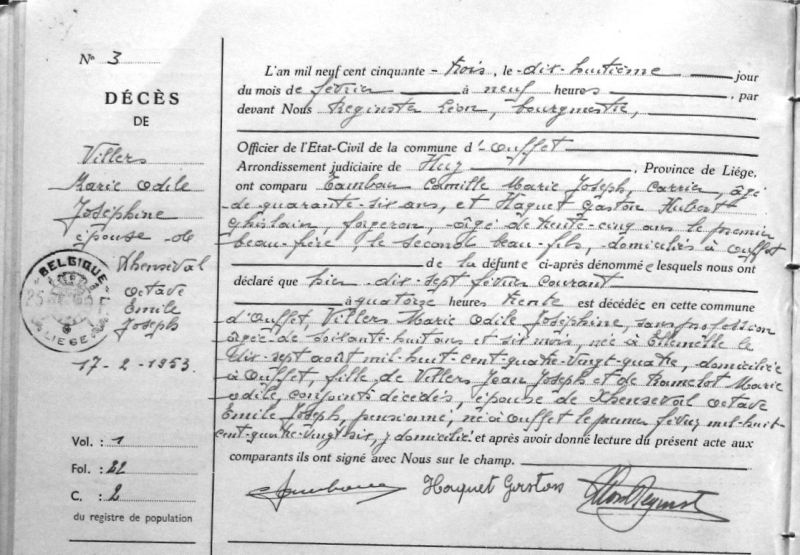 N° 3
DÉCÈS
DE
Villers
Marie Odile
Joséphine
épouse de
Xhenseval
Octave
Emile
Joseph
17-2-1953.
BELGIQUE
LIEGE
Vol. : 1
Fol. : 22
C. : 2
du registre de population
L'an mil neuf cent cinquante-trois, le dix-huitième jour
du mois de février à neuf heures, par
devant Nous Reginster Léon, bourgmestre,
Officier de l'Etat-Civil de la commune d'Ouffet
Arrondissement judiciaire de Huy, Province de Liége,
ont comparu Tambour Camille Marie Joseph, carrier, âgé
de quarante-six ans, et Haquet Gaston Hubert
Ghislain, forgeron, âgé de trente-cinq ans le premier
beau-frère, le second beau-fils, domiciliés à Ouffet
de la défunte ci-après dénommée lesquels nous ont
déclaré que hier dix-sept février courant
à quatorze heures trente est décédée en cette commune
d'Ouffet, Villers Marie Odile Joséphine, sans profession
âgée de soixante-huit ans et six mois, née à Ellemelle le
dix-sept août mil-huit-cent-quatre-vingt-quatre, domiciliée
à Ouffet, fille de Villers Jean Joseph et de Hamelot Marie
Odile, conjoints décédés, épouse de Xhenseval Octave
Emile Joseph, pensionné, né à Ouffet le premier février mil-huit-
cent-quatre-vingt-six, y domicilié. et après avoir donné lecture du présent acte aux
comparants ils ont signé avec Nous sur le champ.
Haquet Gaston